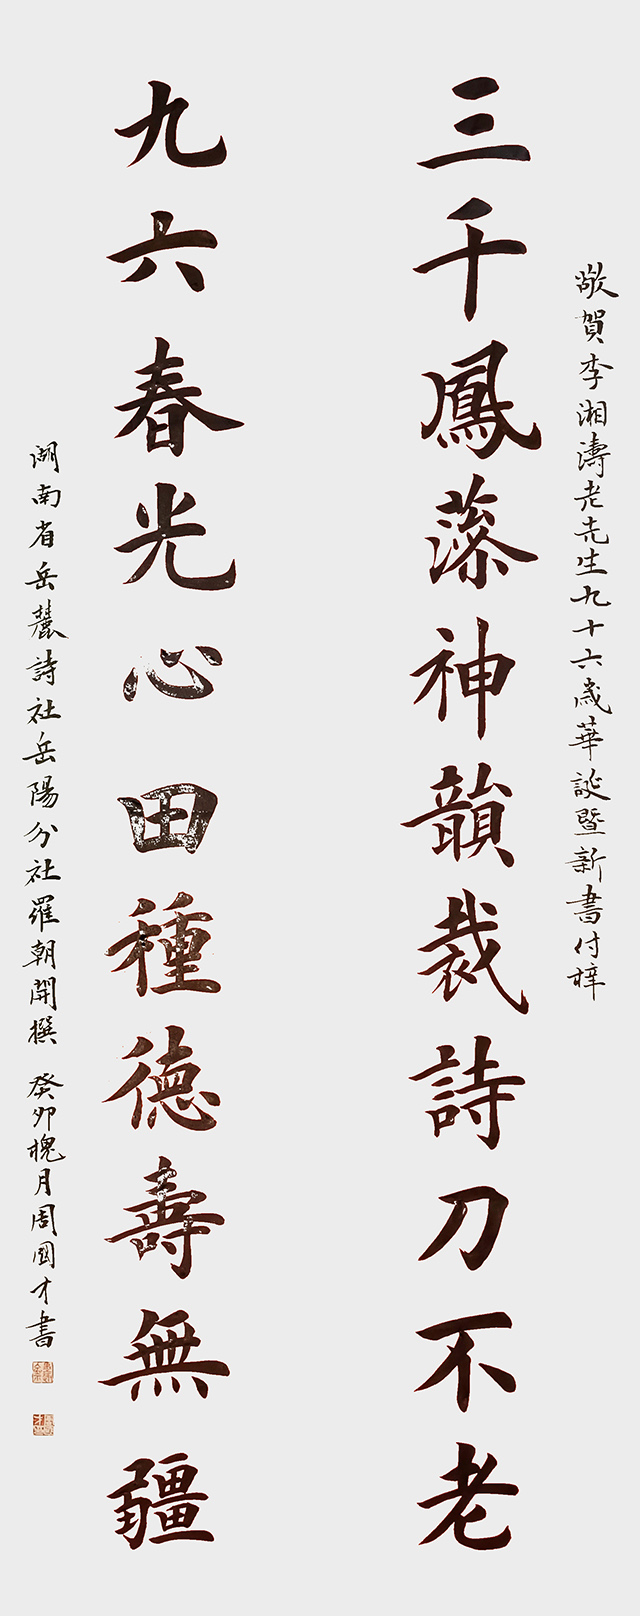 敬賀李湘濤老先生九十六歲華誕暨新書付梓
三千鳳藻神韻裁詩刀不老
九六春光心田種德壽無疆
湖南省岳麓詩社岳陽分社羅朝開撰 癸卯槐月周國才書